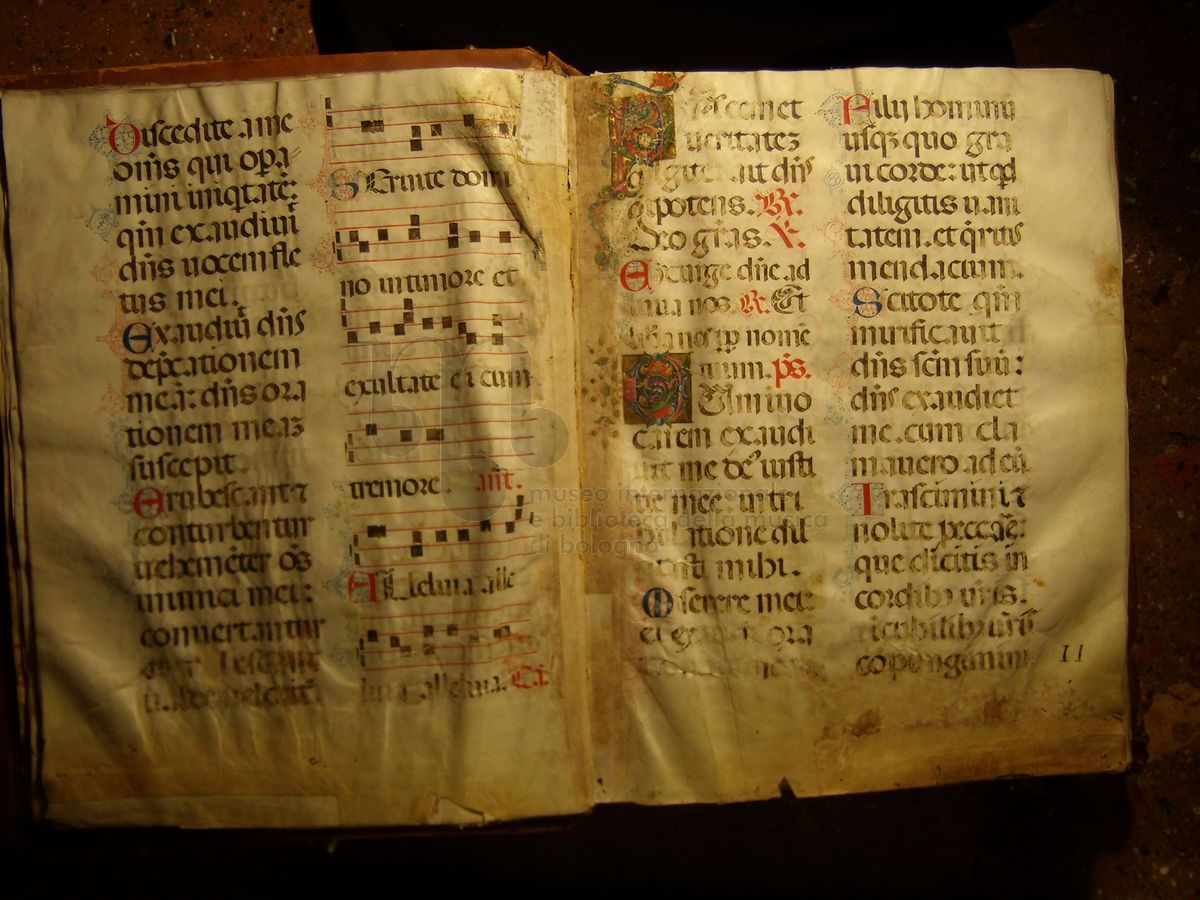 Discedite a me
oms qui opa
mini iniqtate:
qm exaudiuit
dns uocem fle
tus mei.
Exaudiu dns
depcationem
mea: dns ora
tionem meaz
suscepit.
Erubescant
conturbentur
uehemeter os
inimici mei:
conuertantur
Seruite domi
no in timore et
exultate ei cum
tremore. ant.
Alleluia alle
luia alleluia.
ueritatez
potens. R.
Deo gras. V.
Exurge dne ad
iuua nos. R. Et
nome
tuum. ps.
Cum inuo
carem exaudi
uit me de iusti
tie mee: in tri
bulatione dil
atasti mihi.
Miserere mei:
et exaudi ora
Filii hominum
usqz quo gra
ui corde: ut qd
diligitis uani
tatem. et qritis
mendacium.
Scitote qm
mirificauit
dns scm suu:
dns exaudiet
me. cum cla
mauero ad eu
Irascimini
nolite peccare:
que dicitis in
cordibz uris.
copungimini.
11
museo internazionale
e biblioteca della musica
di bologna